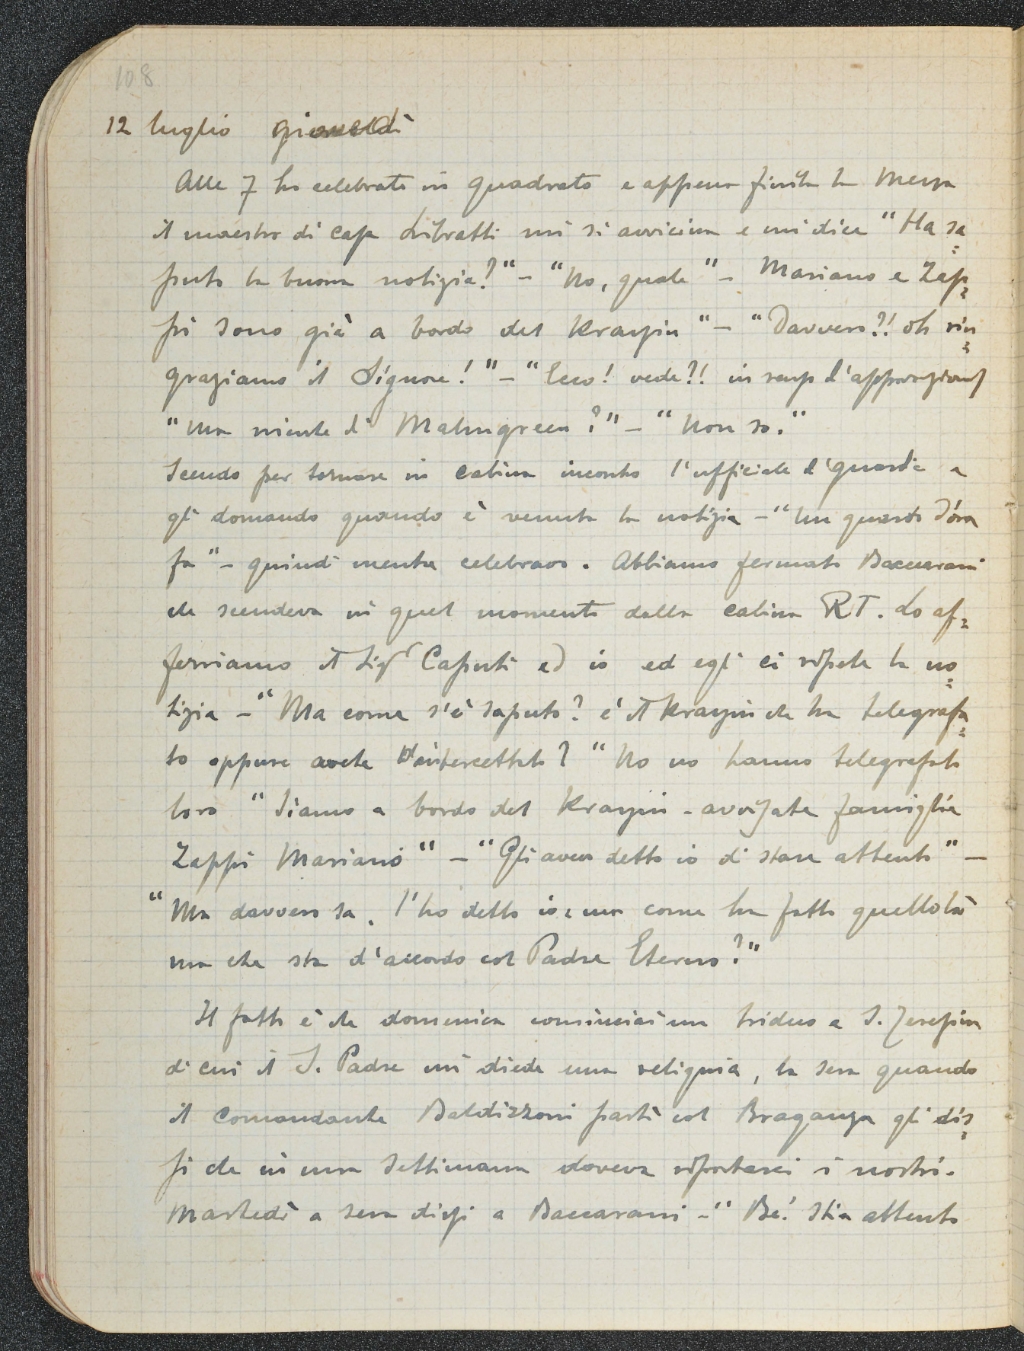 108
12 luglio giovedì
Alle 7 ho celebrato in quadrato e appena finita la Messa
il maestro di casa Libratti mi si avvicina e mi dice "Ha sa=
puto la buona notizia?" - "No, quale" - Mariano e Zap=
pi sono già a bordo del Krassin" - "Davvero?! oh rin=
graziamo il Signore!" - "Ecco! vede?! in senso d'approvazione
"ma niente di Malmgreen?" - "Non so."
Scendo per tornare in cabina incontro l'ufficiale di guardia e
gli domando quando è venuta la notizia - "Un quarto d'ora
fa" - quindi mentre celebravo. Abbiamo fermato Baccarani
che scendeva in quel momento dalla cabina RT. Lo af=
ferriamo il Sigr Caputi ed io ed egli ci ripete la no=
tizia - "Ma come s'è saputo? è il Krassin che ha telegrafa=
to oppure avete intercettato? "No no hanno telegrafato
loro "Siamo a bordo del Krassin - avvisate famiglia
Zappi Mariano" - "Gli avevo detto io di stare attento" -
"Ma davvero sa, l'ho detto io, ma come ha fatto quello là
ma che sta d'accordo col Padre Eterno?"
Il fatto è che domenica cominciai un triduo a S. Teresina
di cui il S. Padre mi diede una reliquia, la sera quando
il comandante Baldizzoni partì col Braganza gli dis=
si che in una settimana doveva riportarci i nostri.
Martedì a sera dissi a Baccarani - "Be! Stia attento